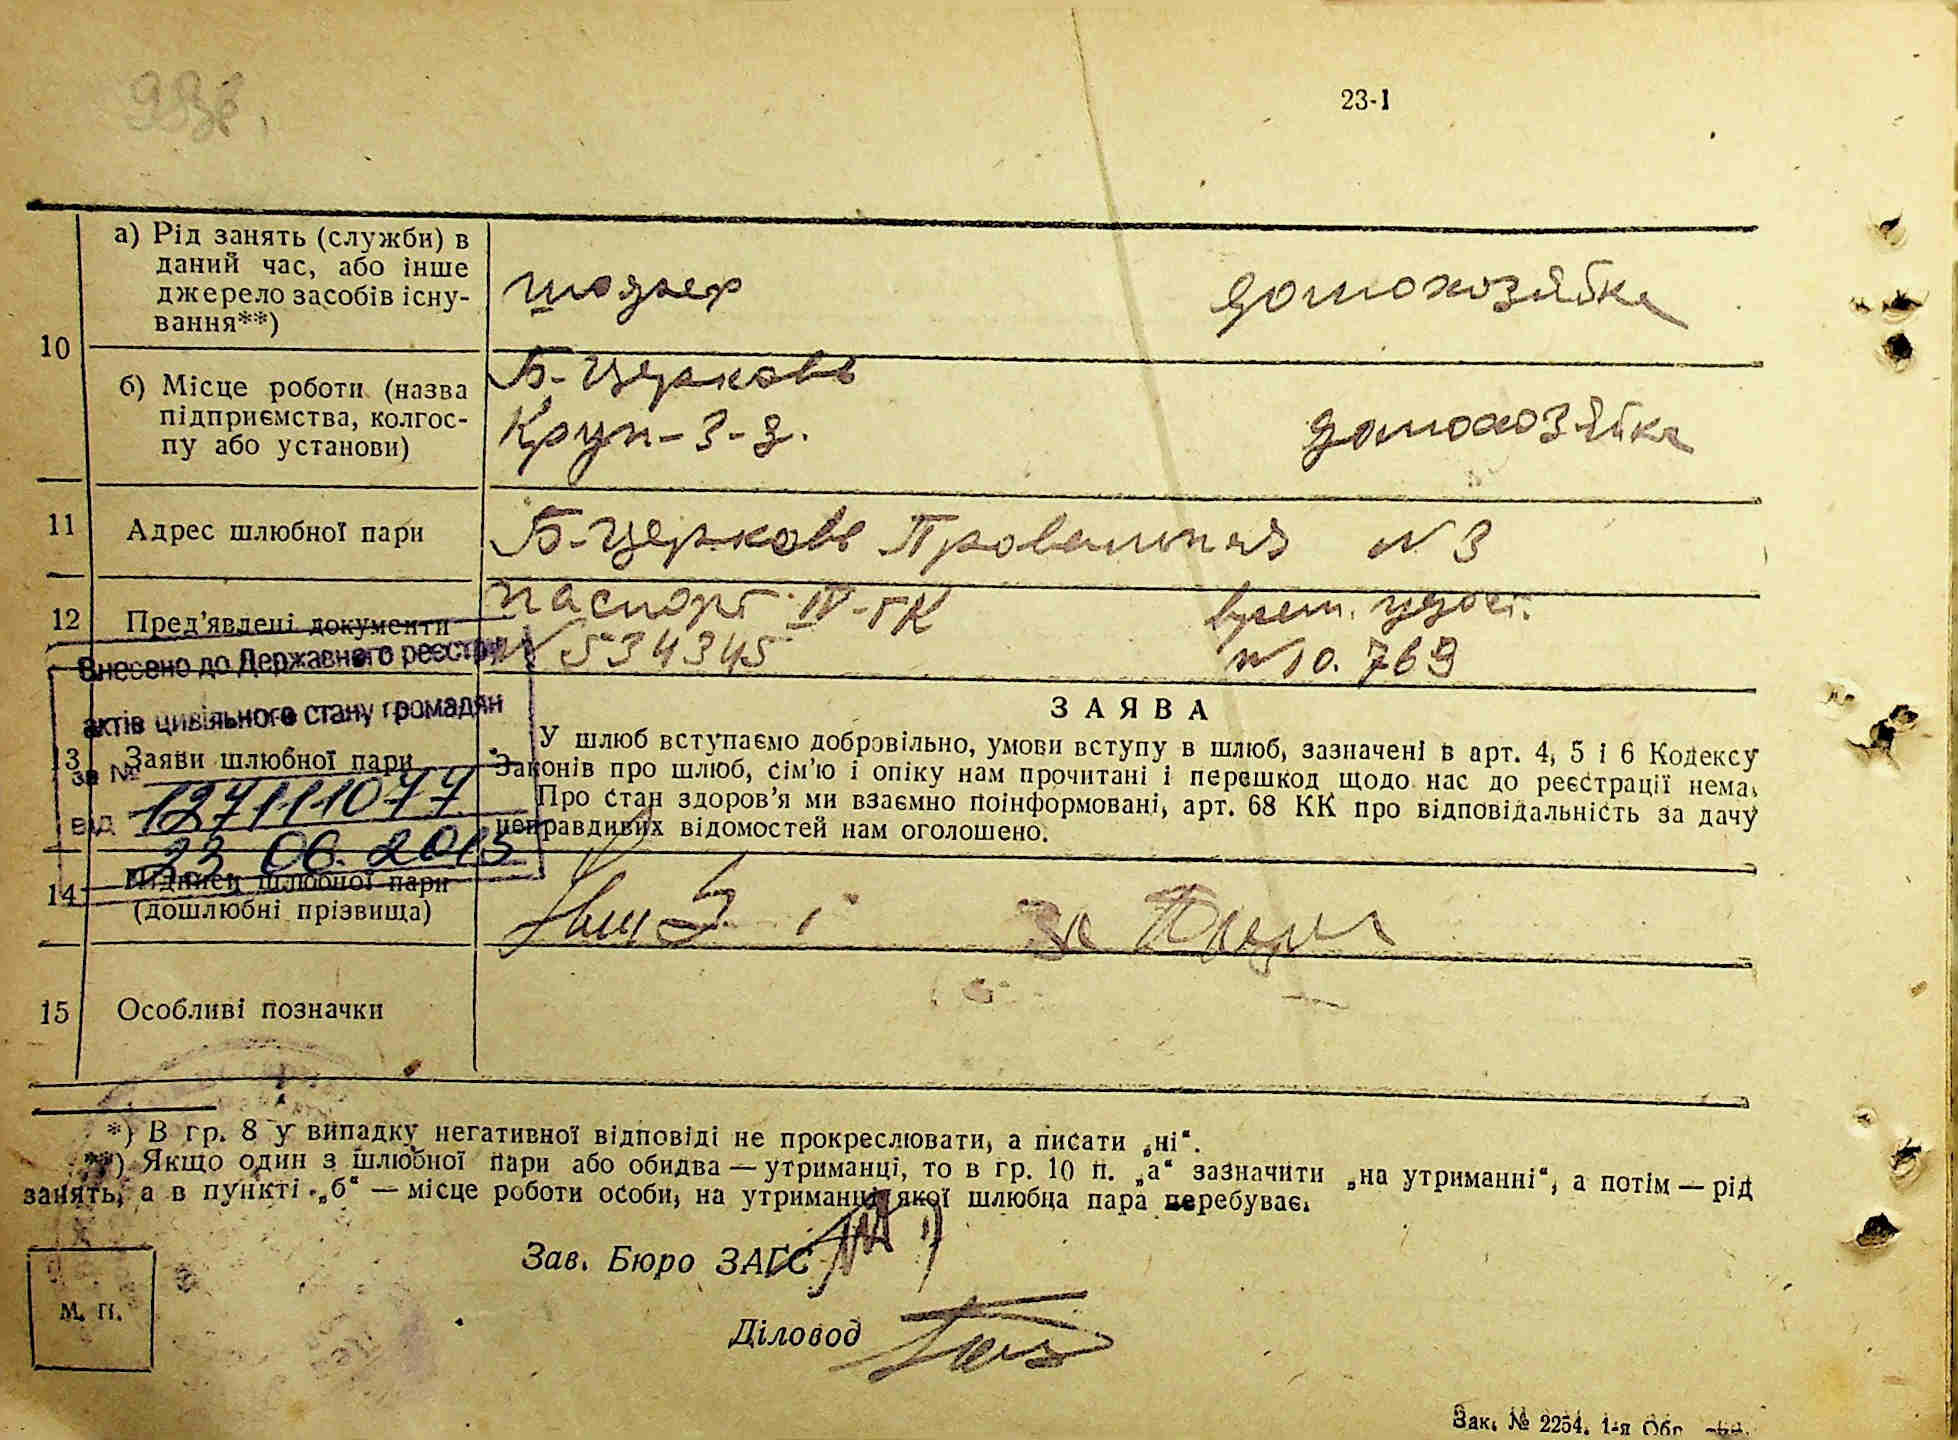 23-I
а) Рід занять (служби) в
даний час, або інше
джерело засобів існу-
вання**)
шофер
домохозяйка
10
б) Місце роботи (назва
підприємства, колгос-
пу або установи)
Б-Церковь
Круп-з-д.
домохозяйка
11
Адрес шлюбної пари
Б-Церковь № 3
12
Пред'явлені документи
паспорт IV-ГК
№ 534345
врем. удост.
№ 10.769
Внесено до Державного реєстру
актів цивільного стану громадян
за №
127111077
від
23 06. 2015
13
Заяви шлюбної пари
ЗАЯВА
У шлюб вступаємо добровільно, умови вступу в шлюб, зазначені в арт. 4, 5 і 6 Кодексу
Законів про шлюб, сім'ю і опіку нам прочитані і перешкод щодо нас до реєстрації нема.
Про стан здоров'я ми взаємно поінформовані, арт. 68 КК про відповідальність за дачу
неправдивих відомостей нам оголошено.
14
Підписи шлюбної пари
(дошлюбні прізвища)
15
Особливі позначки
*) В гр. 8 у випадку негативної відповіді не прокреслювати, а писати „ні“.
**) Якщо один з шлюбної пари або обидва — утриманці, то в гр. 10 п. „а“ зазначити „на утриманні“, а потім — рід
занять, а в пункті „б“ — місце роботи особи, на утриманні якої шлюбна пара перебуває.
Зав. Бюро ЗАГС
М. П.
Діловод
Зак. № 2254. 1-я Обр